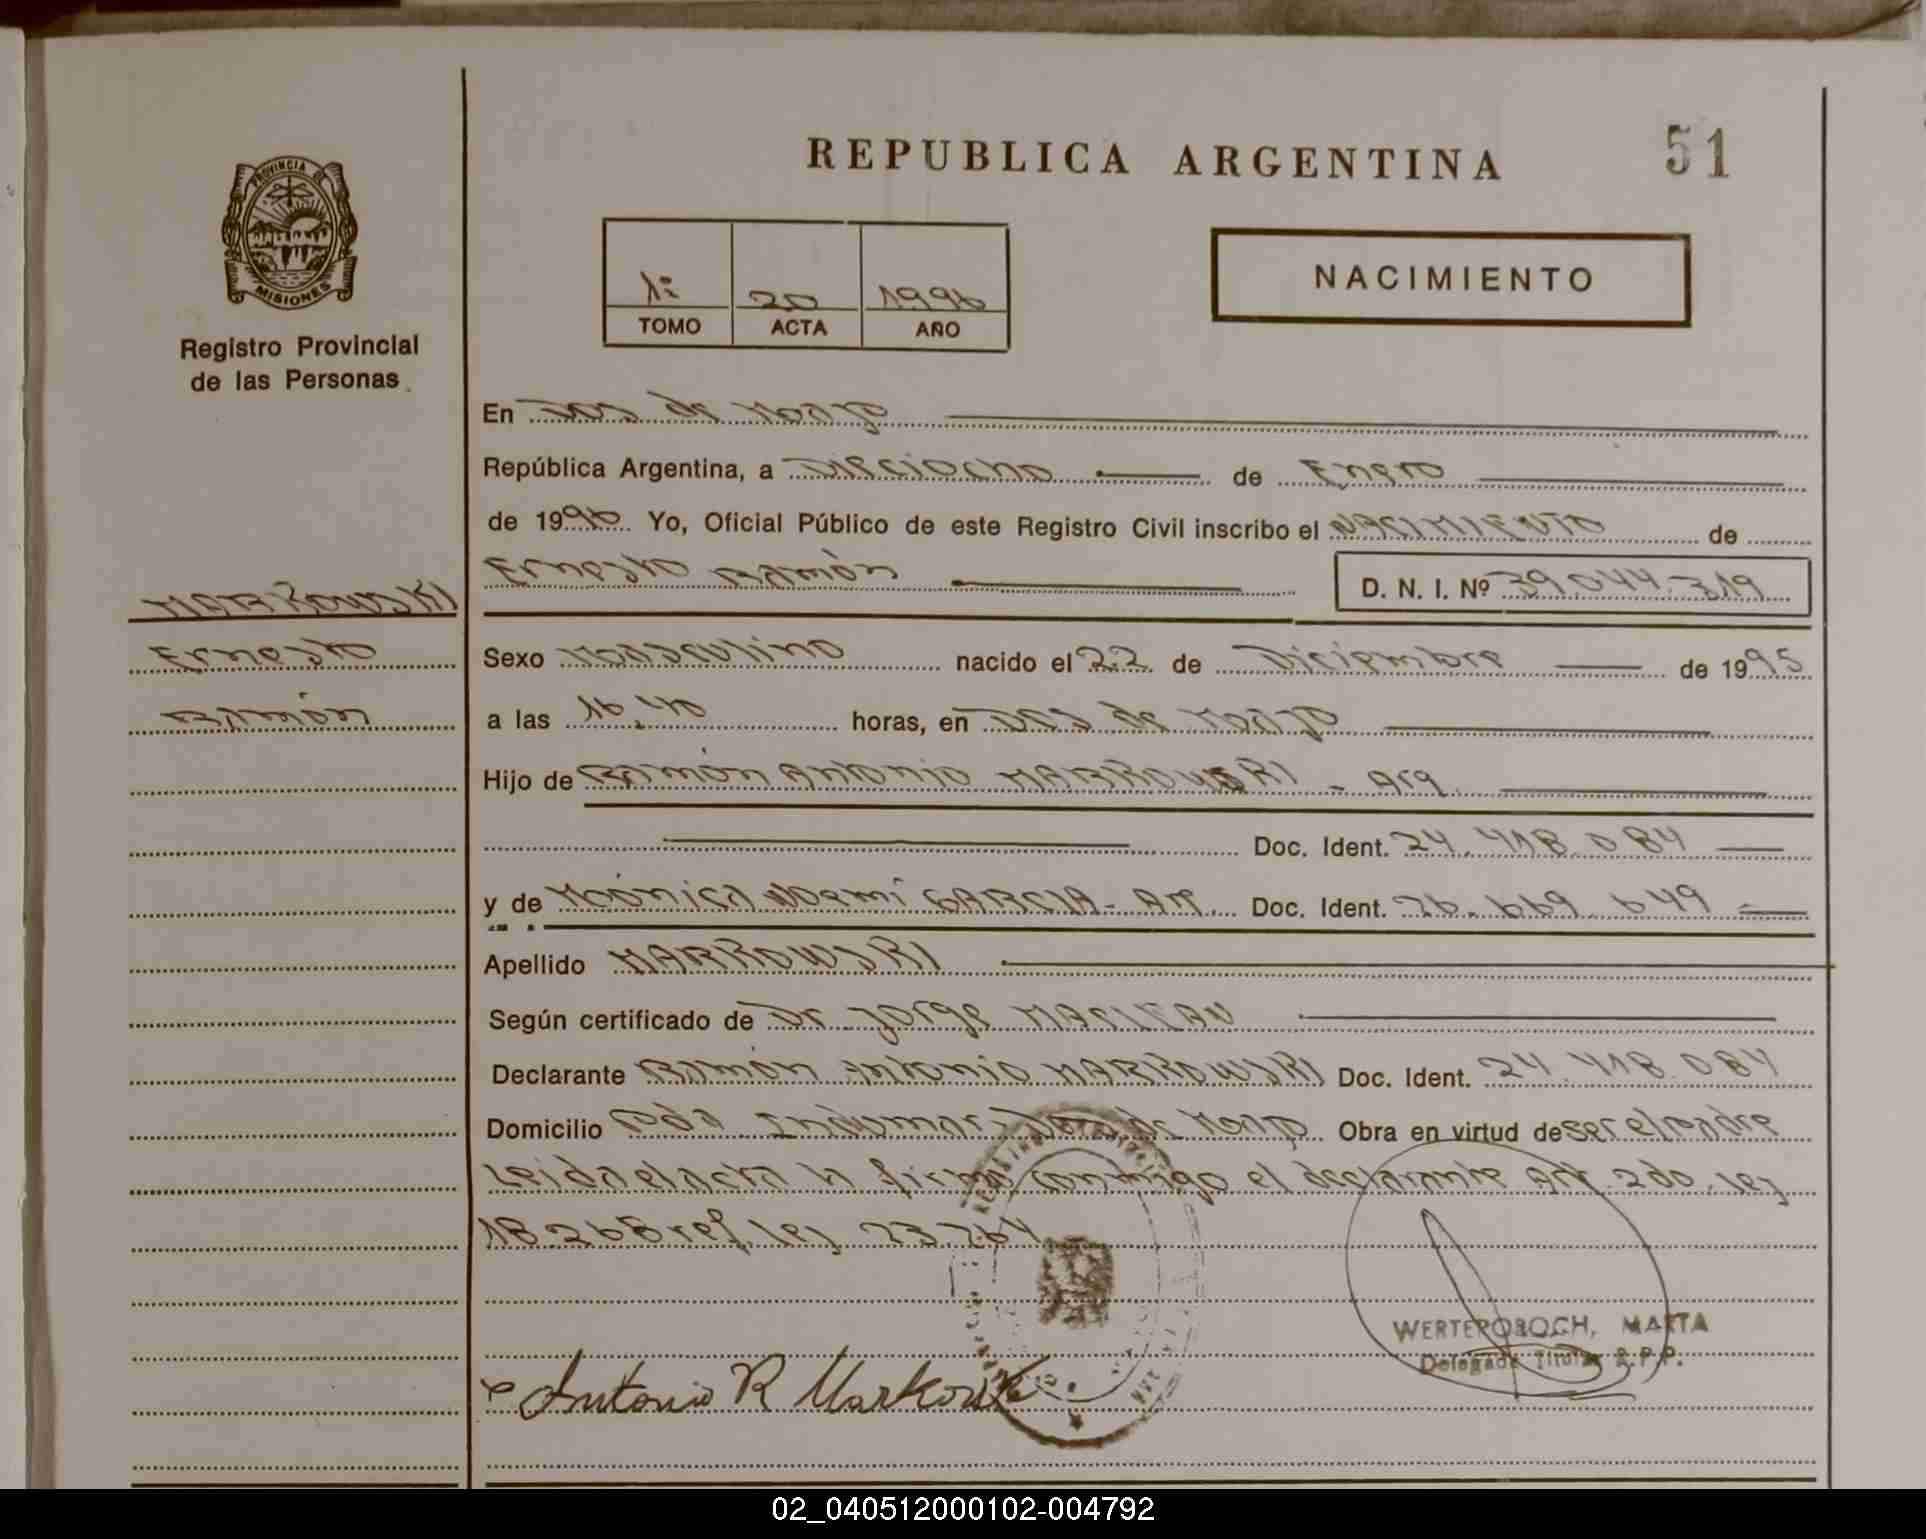 REPUBLICA ARGENTINA
51
PROVINCIA DE
MISIONES
Registro Provincial
de las Personas
1º 20 1996
TOMO ACTA AÑO
NACIMIENTO
En Dos de Mayo
República Argentina, a Dieciocho de Enero
de 1996 Yo, Oficial Público de este Registro Civil inscribo el NACIMIENTO de
Ernesto Ramón D. N. I. Nº 39.044.319
MARKOWSKI
Ernesto
Ramón
Sexo Masculino nacido el 22 de Diciembre de 1995
a las 16,40 horas, en Dos de Mayo
Hijo de Ramón Antonio MARKOWSKI - Arg.
Doc. Ident. 24.418.084
y de Mónica Noemí GARCIA - Arg. Doc. Ident. 26.669.649
Apellido MARKOWSKI
Según certificado de Dr. Jorge MACLEAN
Declarante Ramón Antonio MARKOWSKI Doc. Ident. 24.418.084
Domicilio Pda. Indumar - Dos de Mayo Obra en virtud de ser el padre
Leida el acta la firma conmigo el declarante Art. 2do. Ley
18.268 ref. Ley 23.764
Antonio R Markowski
WERTEROBOCH, MARTA
Delegada Titular R.P.P.
02_040512000102-004792